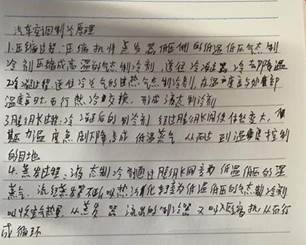 汽车空调制冷原理
1.压缩过程:压缩机将蒸发器低压侧的低温低压气态制
冷剂压缩成高温的气态制冷剂,送往冷凝器冷却降温
2.冷凝过程:送往冷凝气的过热气态制冷剂,在温度高与外部
温度时,进行热交换,形成液态制冷剂
3.膨胀过程:冷凝后的制冷剂经过膨胀阀后体积变大,
温度急剧下降,变成低温蒸气,以达到温度控制
的目地
4.蒸发过程:液态制冷剂通过膨胀阀变为低温低压的湿
蒸气,流经蒸发器不断吸热汽化转变为低温低压的气态制冷剂
吸收空气热量,从蒸发器流出的制冷器又吸入压缩机,从而行
成循环